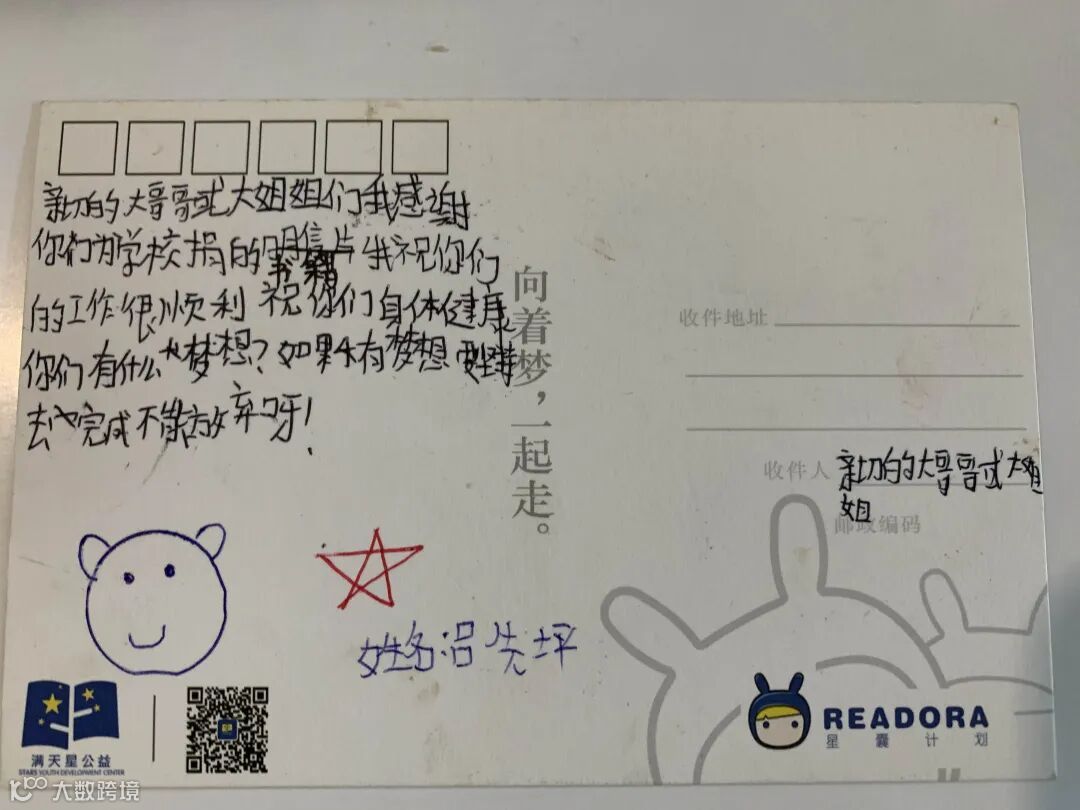 亲切的大哥哥或大姐姐们我感谢
你们为学校捐的明信片我祝你们
书籍
的工作很顺利 祝你们身体健康
你们有什么梦想?如果有梦想要
去完成不能放弃呀!
向着梦,一起走。
收件地址
收件人 亲切的大哥哥或大姐
姐
邮政编码
姓名 先坪
满天星公益
STARS YOUTH DEVELOPMENT CENTER
READORA
星囊计划
大数跨境